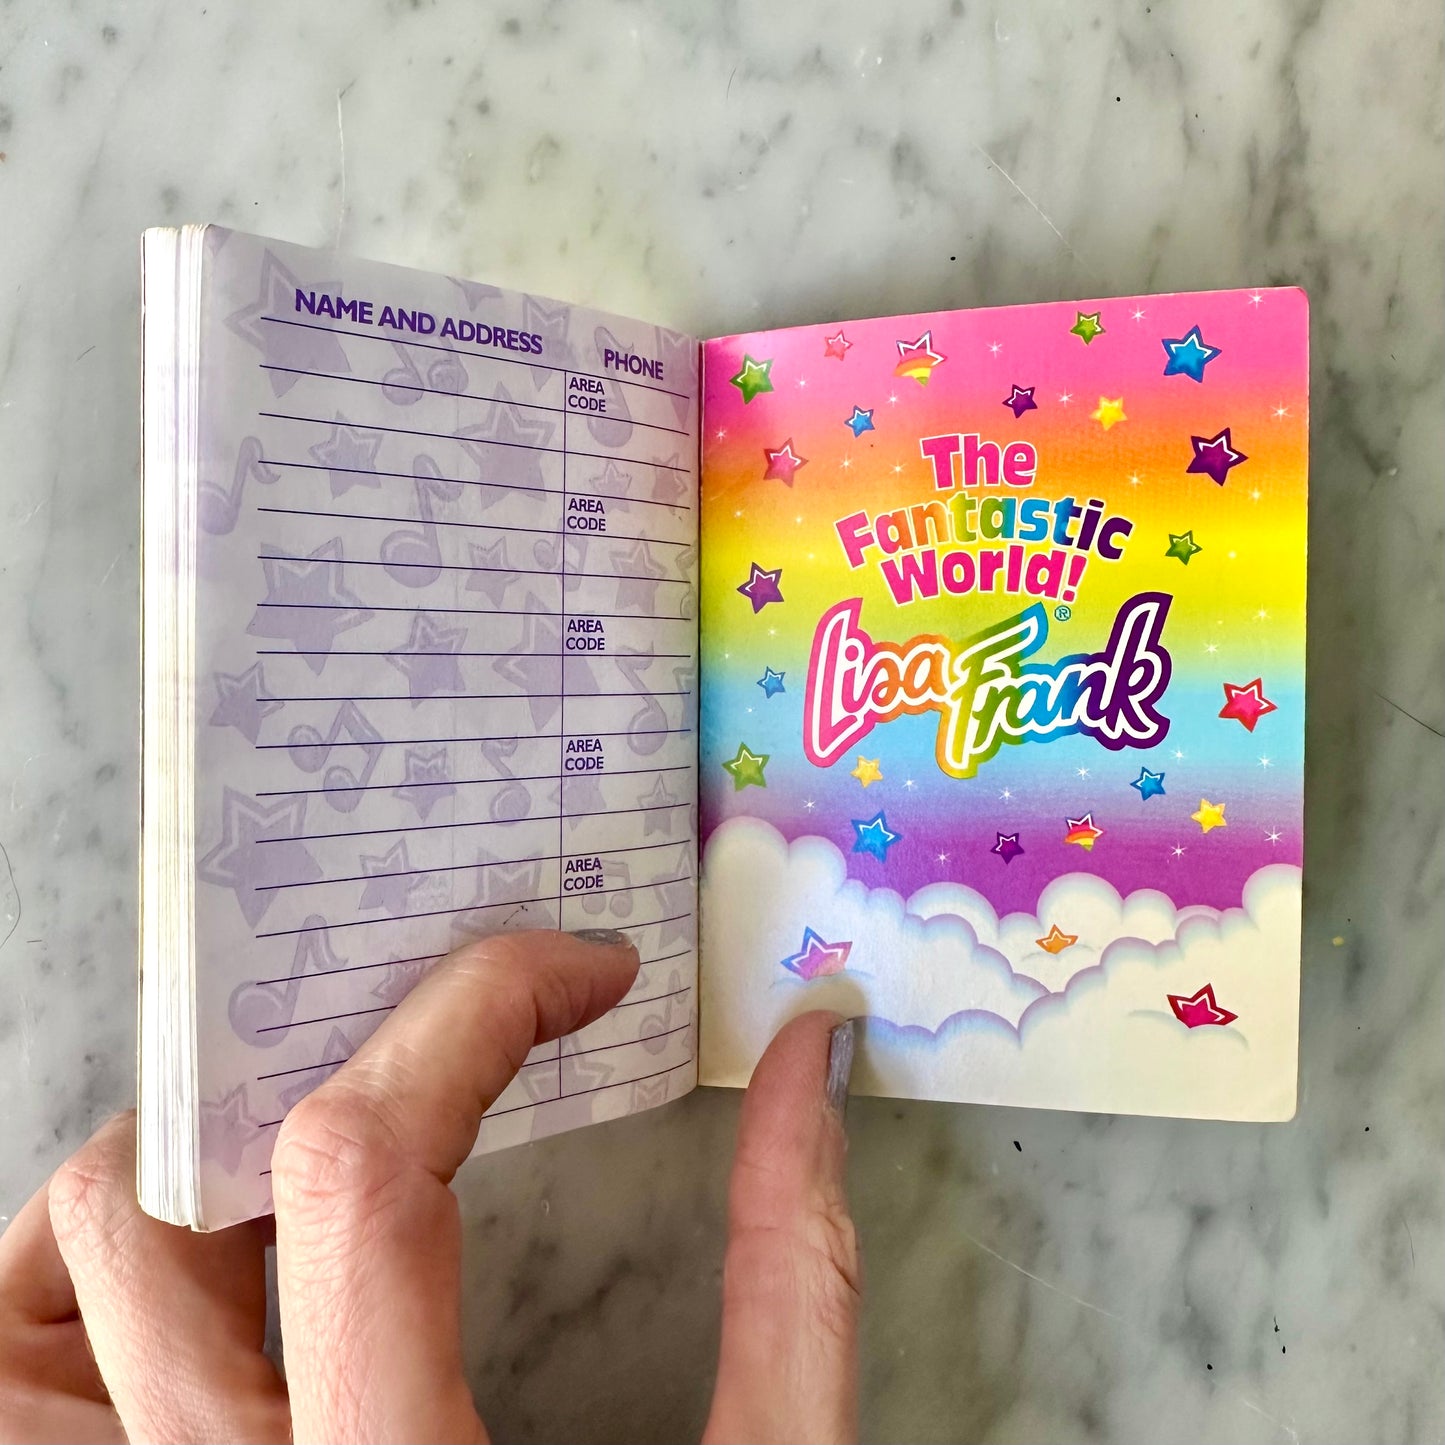 NAME AND ADDRESS
PHONE
AREA
CODE
AREA
CODE
AREA
CODE
AREA
CODE
AREA
CODE
The
Fantastic
World!
Lisa Frank®